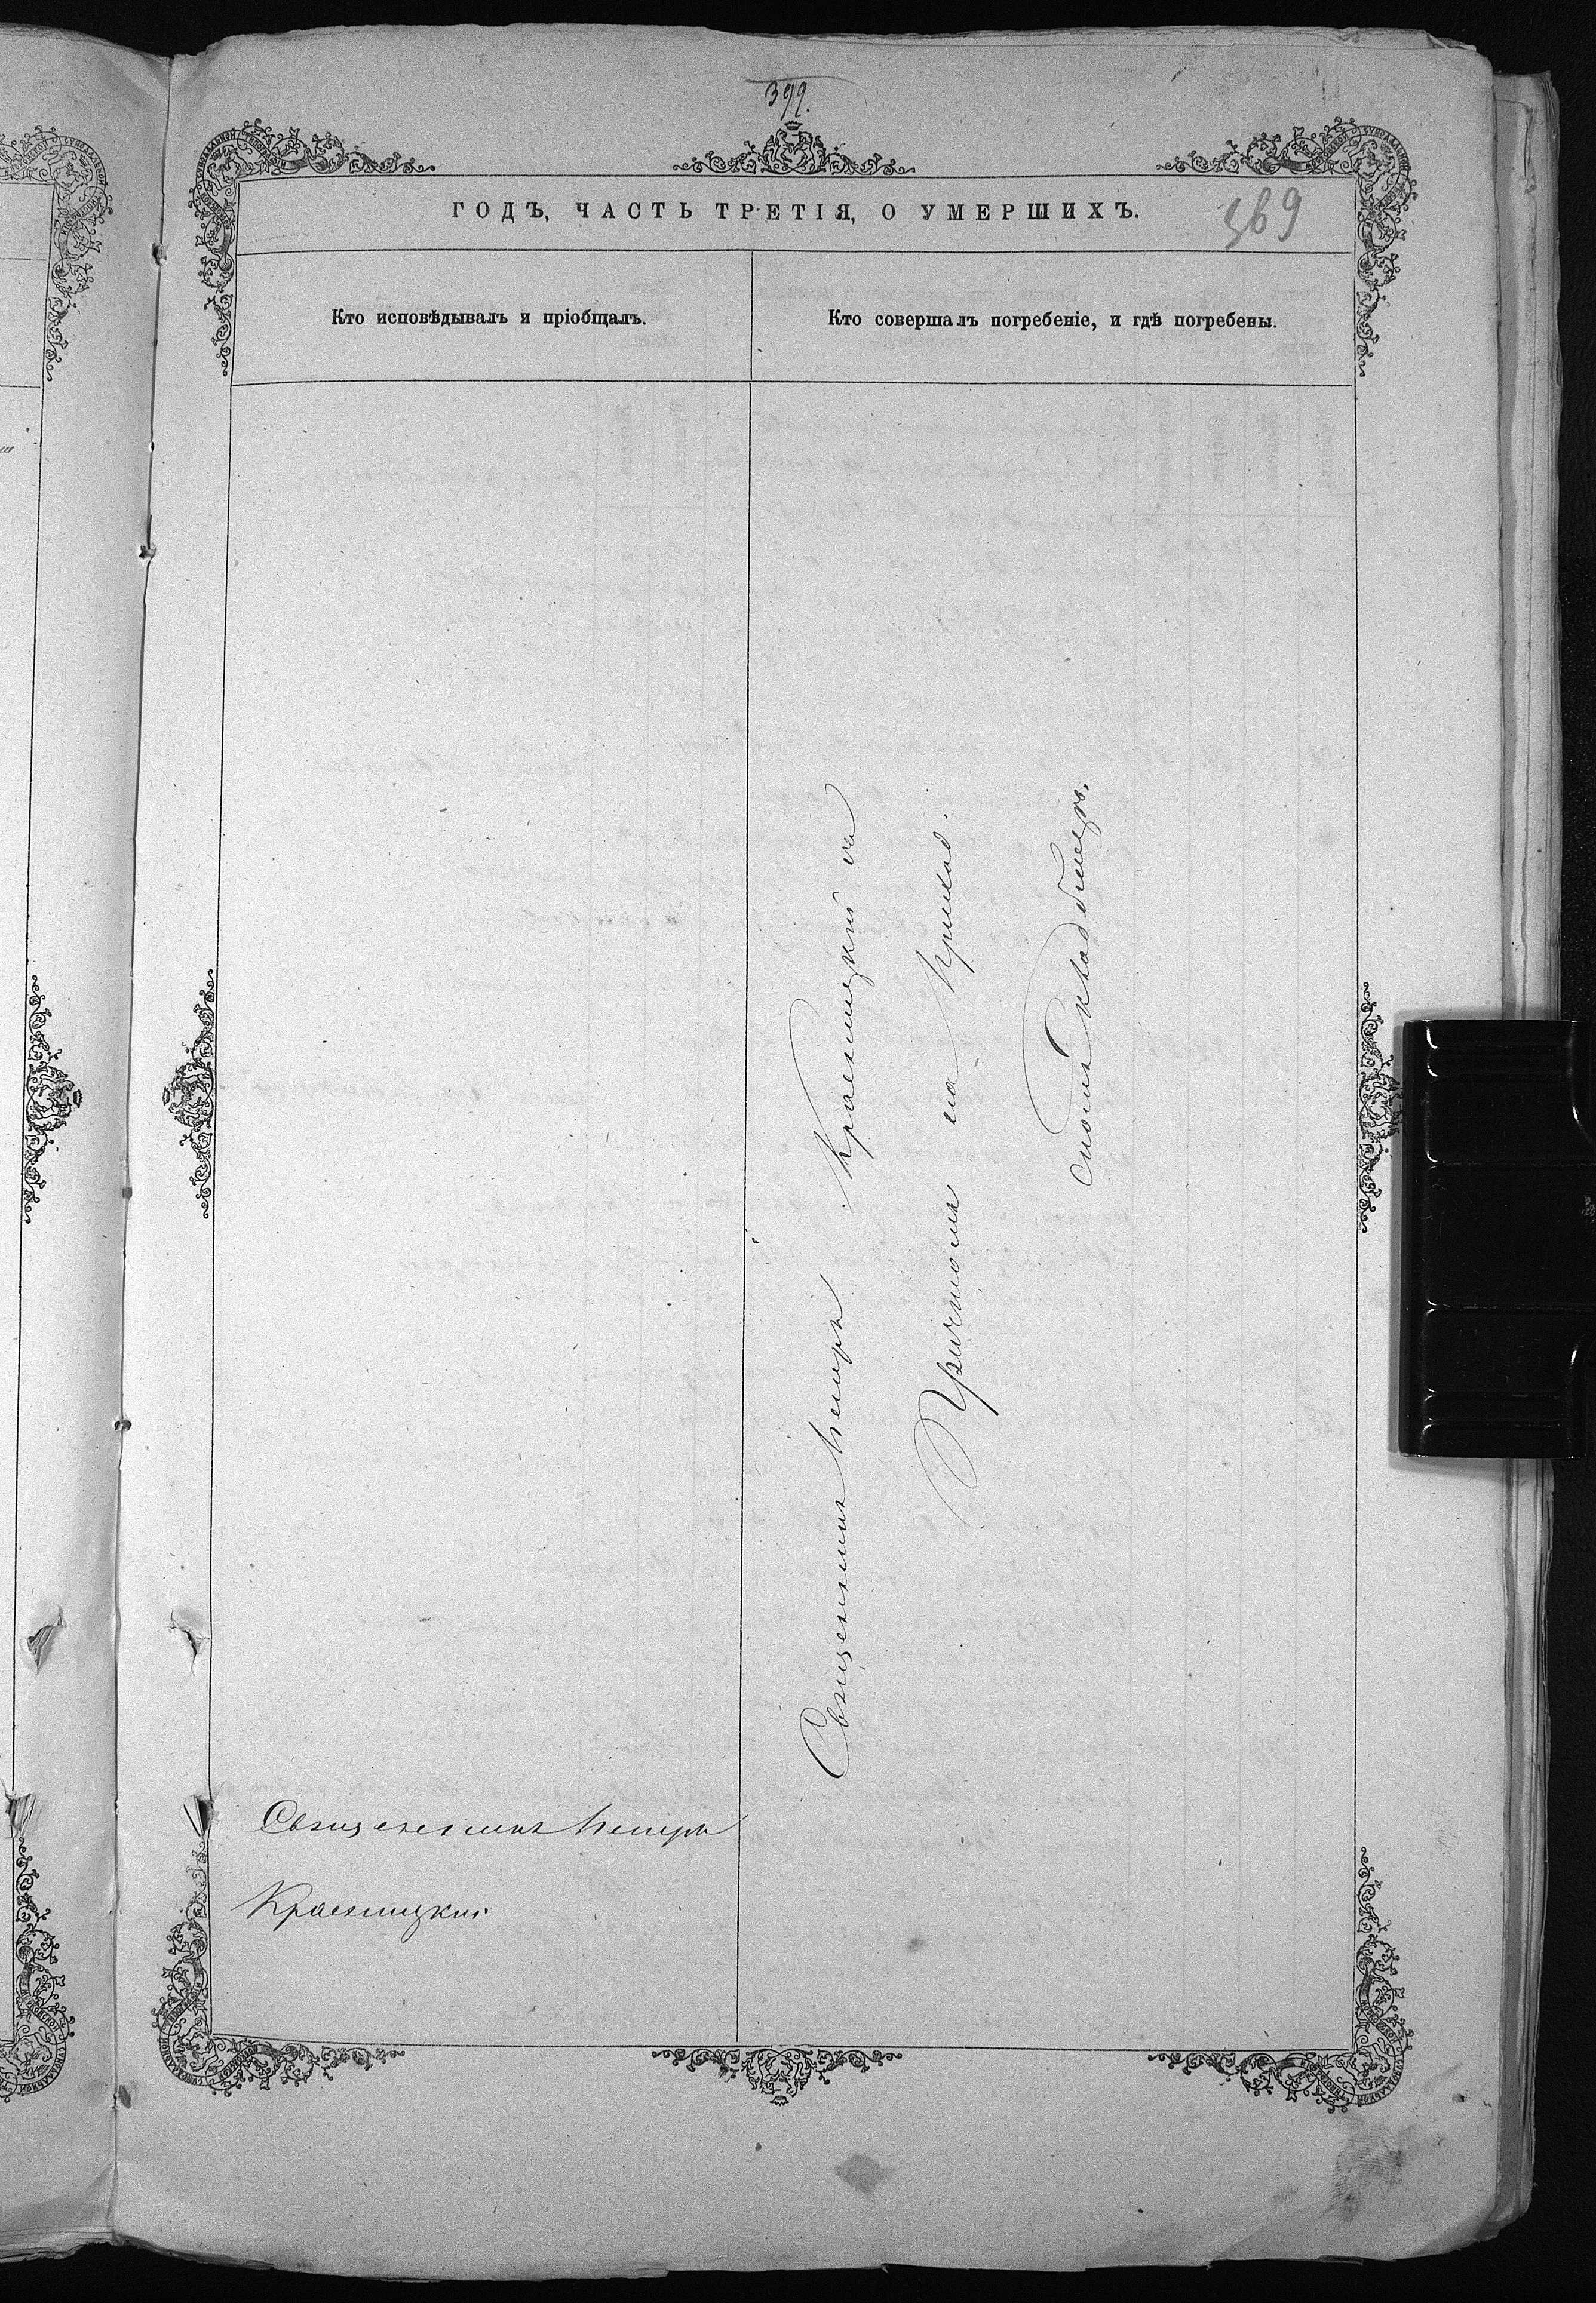 399.
ГОДЪ, ЧАСТЬ ТРЕТІЯ, О УМЕРШИХЪ.
369
Кто исповѣдывалъ и пріобщалъ.
Кто совершалъ погребеніе, и гдѣ погребены.
Священникъ Петръ
Красницкій
Священникъ Петръ Красницкій съ
Причтомъ на Приход.
скомъ кладбищѣ.